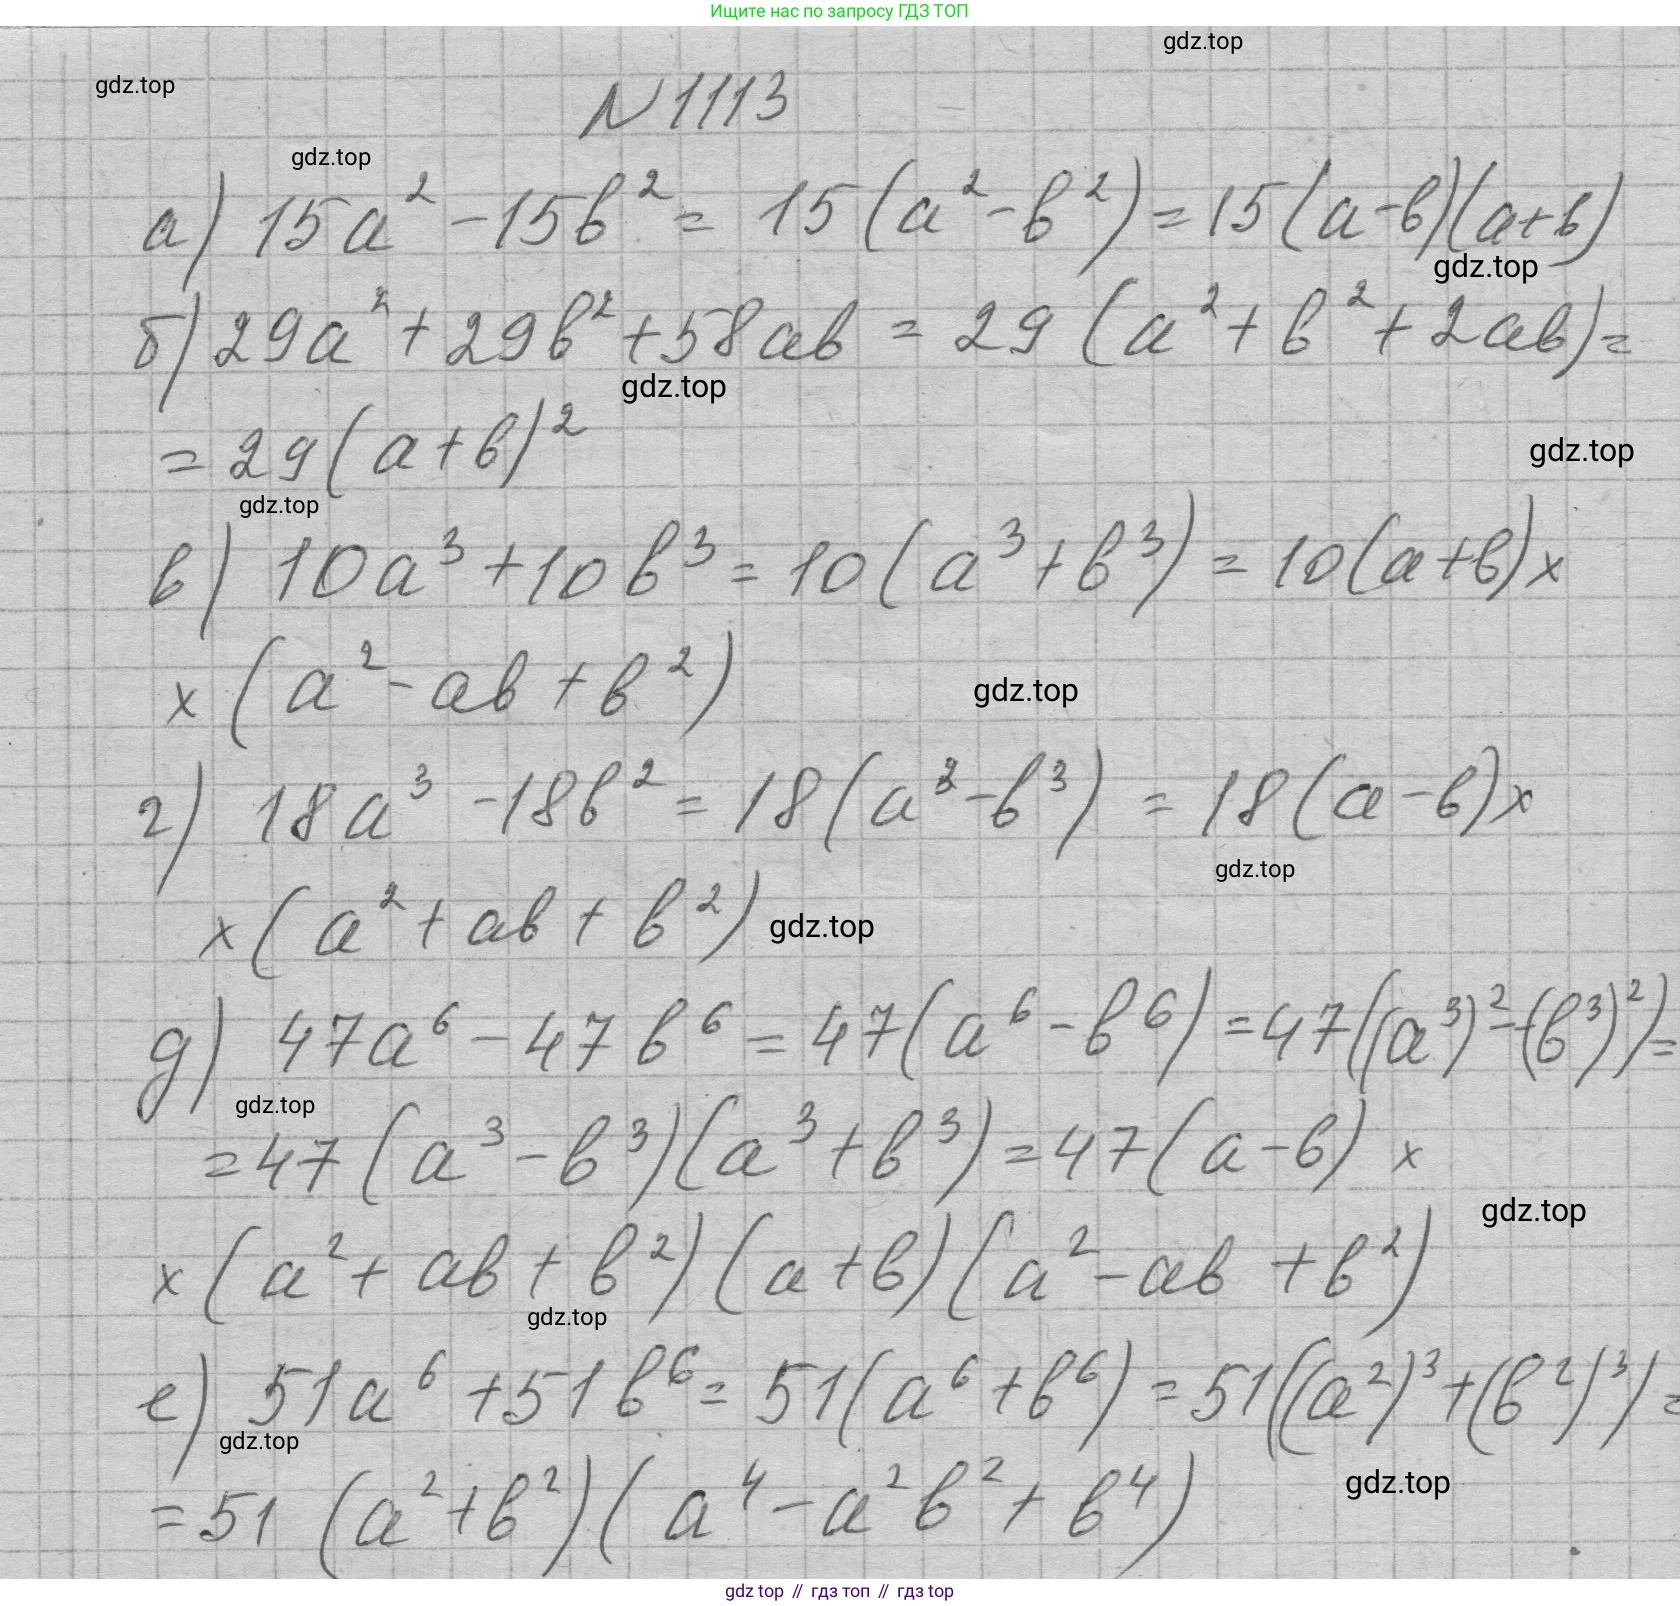 Ищите нас по запросу ГДЗ ТОП
gdz.top
gdz.top
N 1113
gdz.top
а) 15a² - 15b² = 15(a² - b²) = 15(a - b)(a + b)
gdz.top
б) 29a² + 29b² + 58ab = 29(a² + b² + 2ab) =
gdz.top
= 29(a + b)²
gdz.top
gdz.top
в) 10a³ + 10b³ = 10(a³ + b³) = 10(a + b) ×
× (a² - ab + b²)
gdz.top
г) 18a³ - 18b² = 18(a³ - b³) = 18(a - b) ×
gdz.top
× (a² + ab + b²)
gdz.top
д) 47a⁶ - 47b⁶ = 47(a⁶ - b⁶) = 47((a³)² - (b³)²) =
gdz.top
= 47(a³ - b³)(a³ + b³) = 47(a - b) ×
gdz.top
× (a² + ab + b²)(a + b)(a² - ab + b²)
gdz.top
е) 51a⁶ + 51b⁶ = 51(a⁶ + b⁶) = 51((a²)³ + (b²)³) =
gdz.top
gdz.top
= 51(a² + b²)(a⁴ - a²b² + b⁴)
gdz top // гдз топ // гдз top